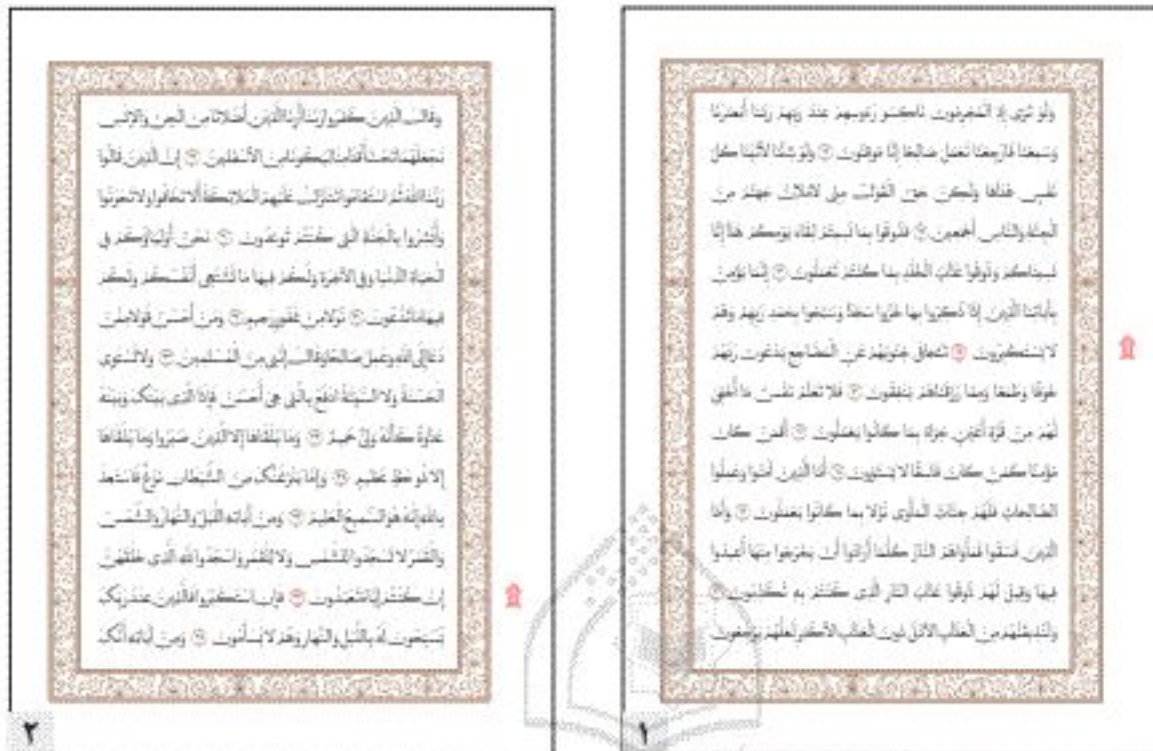 وَلَوْ تَرَى إِذِ الْمُجْرِمُونَ نَاكِسُو رُءُوسِهِمْ عِنْدَ رَبِّهِمْ رَبَّنَا أَبْصَرْنَا
وَسَمِعْنَا فَارْجِعْنَا نَعْمَلْ صَالِحًا إِنَّا مُوقِنُونَ وَلَوْ شِئْنَا لَآتَيْنَا كُلَّ
نَفْسٍ هُدَاهَا وَلَكِنْ حَقَّ الْقَوْلُ مِنِّي لَأَمْلَأَنَّ جَهَنَّمَ مِنَ
الْجِنَّةِ وَالنَّاسِ أَجْمَعِينَ فَذُوقُوا بِمَا نَسِيتُمْ لِقَاءَ يَوْمِكُمْ هَذَا إِنَّا
نَسِينَاكُمْ وَذُوقُوا عَذَابَ الْخُلْدِ بِمَا كُنْتُمْ تَعْمَلُونَ إِنَّمَا يُؤْمِنُ
بِآيَاتِنَا الَّذِينَ إِذَا ذُكِّرُوا بِهَا خَرُّوا سُجَّدًا وَسَبَّحُوا بِحَمْدِ رَبِّهِمْ وَهُمْ
لَا يَسْتَكْبِرُونَ تَتَجَافَى جُنُوبُهُمْ عَنِ الْمَضَاجِعِ يَدْعُونَ رَبَّهُمْ
خَوْفًا وَطَمَعًا وَمِمَّا رَزَقْنَاهُمْ يُنْفِقُونَ فَلَا تَعْلَمُ نَفْسٌ مَا أُخْفِيَ
لَهُمْ مِنْ قُرَّةِ أَعْيُنٍ جَزَاءً بِمَا كَانُوا يَعْمَلُونَ أَفَمَنْ كَانَ
مُؤْمِنًا كَمَنْ كَانَ فَاسِقًا لَا يَسْتَوُونَ أَمَّا الَّذِينَ آمَنُوا وَعَمِلُوا
الصَّالِحَاتِ فَلَهُمْ جَنَّاتُ الْمَأْوَى نُزُلًا بِمَا كَانُوا يَعْمَلُونَ وَأَمَّا
الَّذِينَ فَسَقُوا فَمَأْوَاهُمُ النَّارُ كُلَّمَا أَرَادُوا أَنْ يَخْرُجُوا مِنْهَا أُعِيدُوا
فِيهَا وَقِيلَ لَهُمْ ذُوقُوا عَذَابَ النَّارِ الَّذِي كُنْتُمْ بِهِ تُكَذِّبُونَ
وَلَنُذِيقَنَّهُمْ مِنَ الْعَذَابِ الْأَدْنَى دُونَ الْعَذَابِ الْأَكْبَرِ لَعَلَّهُمْ يَرْجِعُونَ
١
وَقَالَ الَّذِينَ كَفَرُوا رَبَّنَا أَرِنَا الَّذَيْنِ أَضَلَّانَا مِنَ الْجِنِّ وَالْإِنْسِ
نَجْعَلْهُمَا تَحْتَ أَقْدَامِنَا لِيَكُونَا مِنَ الْأَسْفَلِينَ إِنَّ الَّذِينَ قَالُوا
رَبُّنَا اللَّهُ ثُمَّ اسْتَقَامُوا تَتَنَزَّلُ عَلَيْهِمُ الْمَلَائِكَةُ أَلَّا تَخَافُوا وَلَا تَحْزَنُوا
وَأَبْشِرُوا بِالْجَنَّةِ الَّتِي كُنْتُمْ تُوعَدُونَ نَحْنُ أَوْلِيَاؤُكُمْ فِي
الْحَيَاةِ الدُّنْيَا وَفِي الْآخِرَةِ وَلَكُمْ فِيهَا مَا تَشْتَهِي أَنْفُسُكُمْ وَلَكُمْ
فِيهَا مَا تَدَّعُونَ نُزُلًا مِنْ غَفُورٍ رَحِيمٍ وَمَنْ أَحْسَنُ قَوْلًا مِمَّنْ
دَعَا إِلَى اللَّهِ وَعَمِلَ صَالِحًا وَقَالَ إِنَّنِي مِنَ الْمُسْلِمِينَ وَلَا تَسْتَوِي
الْحَسَنَةُ وَلَا السَّيِّئَةُ ادْفَعْ بِالَّتِي هِيَ أَحْسَنُ فَإِذَا الَّذِي بَيْنَكَ وَبَيْنَهُ
عَدَاوَةٌ كَأَنَّهُ وَلِيٌّ حَمِيمٌ وَمَا يُلَقَّاهَا إِلَّا الَّذِينَ صَبَرُوا وَمَا يُلَقَّاهَا
إِلَّا ذُو حَظٍّ عَظِيمٍ وَإِمَّا يَنْزَغَنَّكَ مِنَ الشَّيْطَانِ نَزْغٌ فَاسْتَعِذْ
بِاللَّهِ إِنَّهُ هُوَ السَّمِيعُ الْعَلِيمُ وَمِنْ آيَاتِهِ اللَّيْلُ وَالنَّهَارُ وَالشَّمْسُ
وَالْقَمَرُ لَا تَسْجُدُوا لِلشَّمْسِ وَلَا لِلْقَمَرِ وَاسْجُدُوا لِلَّهِ الَّذِي خَلَقَهُنَّ
إِنْ كُنْتُمْ إِيَّاهُ تَعْبُدُونَ فَإِنِ اسْتَكْبَرُوا فَالَّذِينَ عِنْدَ رَبِّكَ
يُسَبِّحُونَ لَهُ بِاللَّيْلِ وَالنَّهَارِ وَهُمْ لَا يَسْأَمُونَ وَمِنْ آيَاتِهِ أَنَّكَ
٢